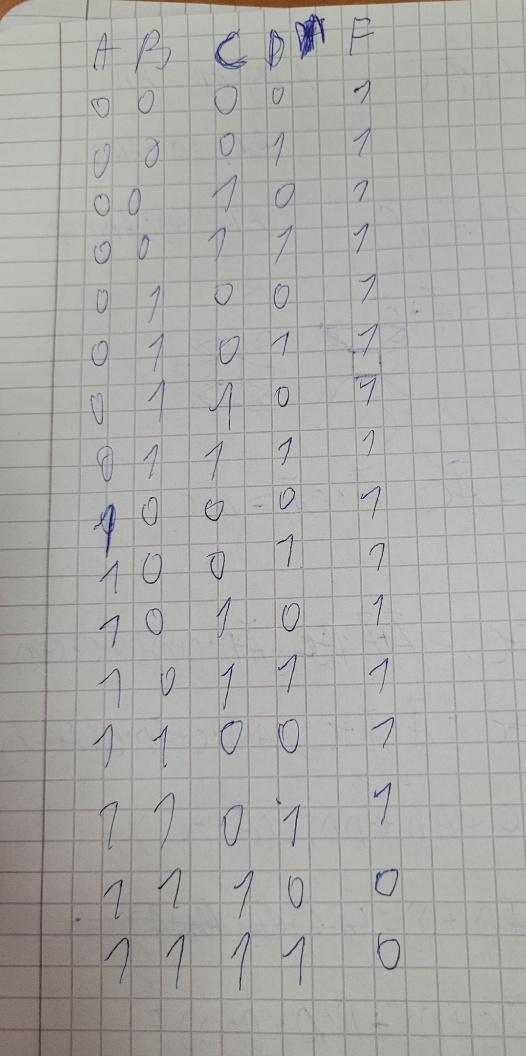 A B C D F
0 0 0 0 1
0 0 0 1 1
0 0 1 0 1
0 0 1 1 1
0 1 0 0 1
0 1 0 1 1
0 1 1 0 1
0 1 1 1 1
1 0 0 0 1
1 0 0 1 1
1 0 1 0 1
1 0 1 1 1
1 1 0 0 1
1 1 0 1 1
1 1 1 0 0
1 1 1 1 0